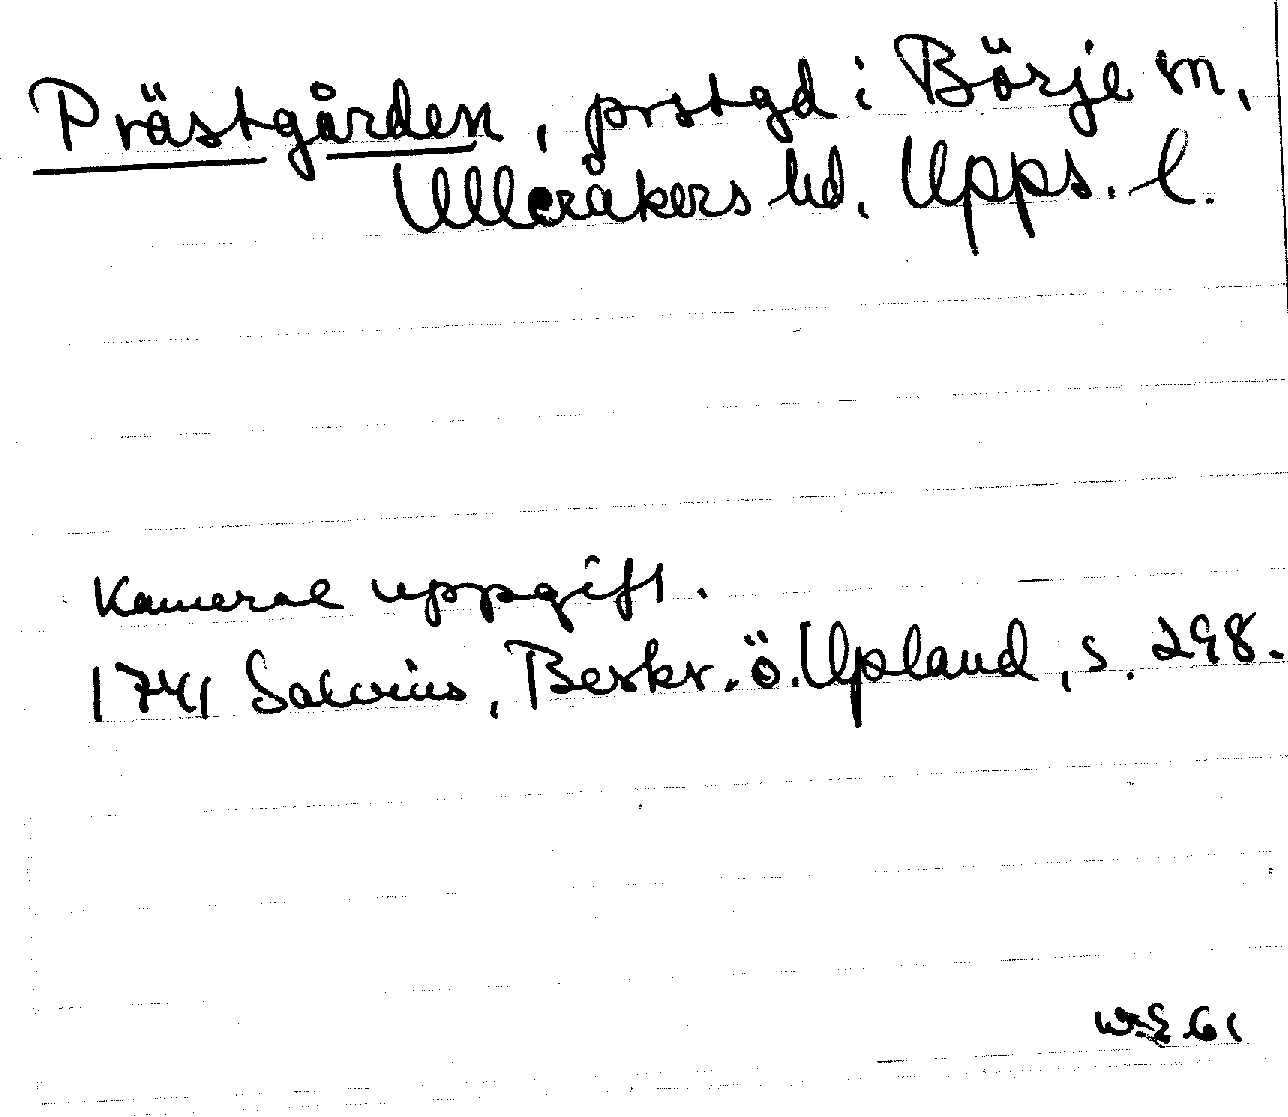 Prästgården, prstgd i Börje sn,
Ulleråkers hd. Upps. l.
Kameral uppgift.
1741 Salvius, Beskr. ö. Upland, s. 298.